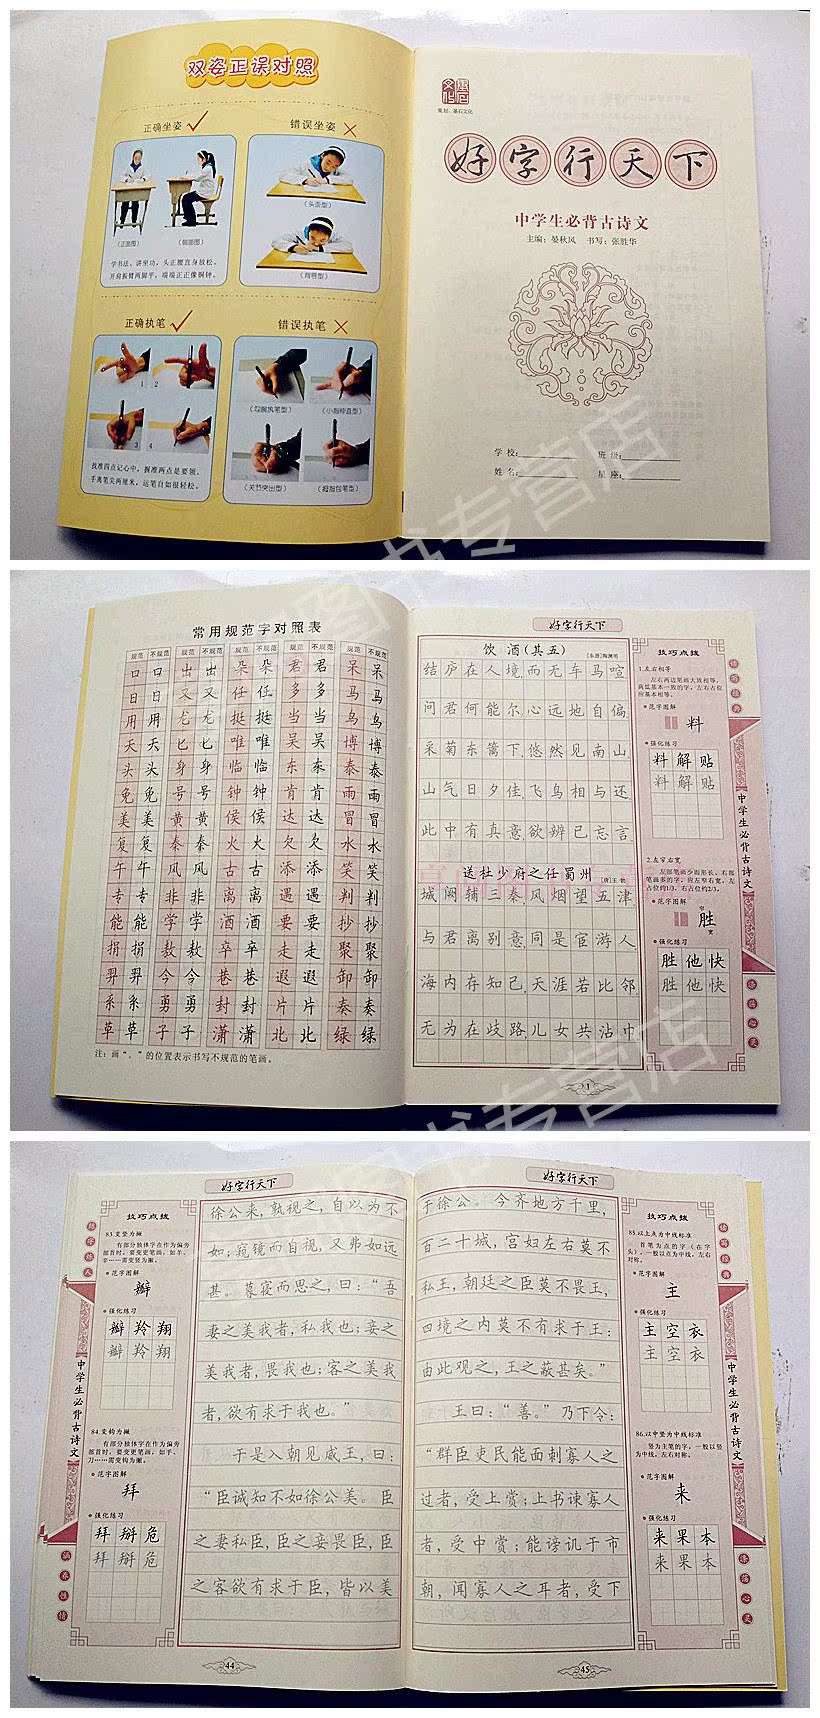 双姿正误对照
正确坐姿
错误坐姿
(正面图)
(侧面图)
(头歪型)
(背弯型)
学书法,讲坐功,头正腰直身放松。
开肩振臂两脚平,端端正正像铜钟。
正确执笔
错误执笔
1
2
3
4
(勾腕执笔型)
(小指伸直型)
(关节突出型)
(拇指包笔型)
找准四点记心中,握准两点是要领。
手离笔尖两厘米,运笔自如很轻松。
策划:墨石文化
好字行天下
中学生必背古诗文
主编:晏秋风 书写:张胜华
学校:
班级:
姓名:
星座:
图书专营店
常用规范字对照表
规范 不规范 规范 不规范 规范 不规范 规范 不规范 规范 不规范
口 口 出 出 朵 朵 君 君 呆 呆
日 日 又 又 任 任 多 多 马 马
用 用 尤 尤 挺 挺 当 当 乌 乌
天 天 匕 匕 唯 唯 吴 吴 博 博
头 头 身 身 临 临 东 东 泰 泰
免 免 号 号 钟 钟 肯 肯 雨 雨
美 美 黄 黄 侯 侯 达 达 冒 冒
复 复 秦 秦 火 火 欠 欠 水 水
午 午 风 风 古 古 添 添 笑 笑
专 专 非 非 离 离 遇 遇 判 判
能 能 学 学 酒 酒 要 要 抄 抄
捐 捐 敖 敖 卒 卒 走 走 聚 聚
羿 羿 今 今 巷 巷 遐 遐 卸 卸
系 系 勇 勇 封 封 片 片 奏 奏
草 草 子 子 潇 潇 北 北 绿 绿
注:画“。”的位置表示书写不规范的笔画。
好字行天下
饮酒(其五)
[东晋]陶渊明
结庐在人境,而无车马喧
问君何能尔,心远地自偏
采菊东篱下,悠然见南山
山气日夕佳,飞鸟相与还
此中有真意,欲辨已忘言
送杜少府之任蜀州
[唐]王勃
城阙辅三秦,风烟望五津
与君离别意,同是宦游人
海内存知己,天涯若比邻
无为在歧路,儿女共沾巾
1
技巧点拨
1.左右相等
左右两边笔画大致相等,
高低基本一致的字,左右占位
应基本相等。
范字图解
料
强化练习
料解贴
料解贴
2.左窄右宽
左部笔画少而形长、右部
笔画多的字,应左窄右宽,左
占位约1/3,右占位约2/3。
范字图解
窄
胜
宽
强化练习
胜他快
胜他快
读写经典
中学生必背古诗文
涤荡心灵
图书专营店
好字行天下
技巧点拨
83.变竖为撇
有部分独体字在作为偏旁
部首时,要变更笔画,如羊、
辛……需变竖为撇。
范字图解
瓣
强化练习
瓣羚翔
瓣羚翔
84.变钩为撇
有部分独体字在作为偏旁
部首时,要变更笔画,如手、
刀……需变钩为撇。
范字图解
拜
强化练习
拜掰危
拜掰危
中学生必背古诗文
涵养性情
徐公来,孰视之,自以为不
如;窥镜而自视,又弗如远
甚。暮寝而思之,曰:“吾
妻之美我者,私我也;妾之
美我者,畏我也;客之美我
者,欲有求于我也。”
于是入朝见威王,曰:
“臣诚知不如徐公美。臣
之妻私臣,臣之妾畏臣,臣
之客欲有求于臣,皆以美
44
好字行天下
于徐公。今齐地方千里,
百二十城,宫妇左右莫不
私王,朝廷之臣莫不畏王,
四境之内莫不有求于王:
由此观之,王之蔽甚矣。”
王曰:“善。”乃下令:
“群臣吏民能面刺寡人之
过者,受上赏;上书谏寡人
者,受中赏;能谤讥于市
朝,闻寡人之耳者,受下
45
技巧点拨
85.以上点为中线标准
首笔为点的字(在字
头),一般以点为中线,左右
对称。
范字图解
主
强化练习
主空衣
主空衣
86.以中竖为中线标准
竖为主笔的字,一般以竖
为中线,左右对称。
范字图解
来
强化练习
来果本
来果本
读写经典
中学生必背古诗文
涤荡心灵
图书专营店